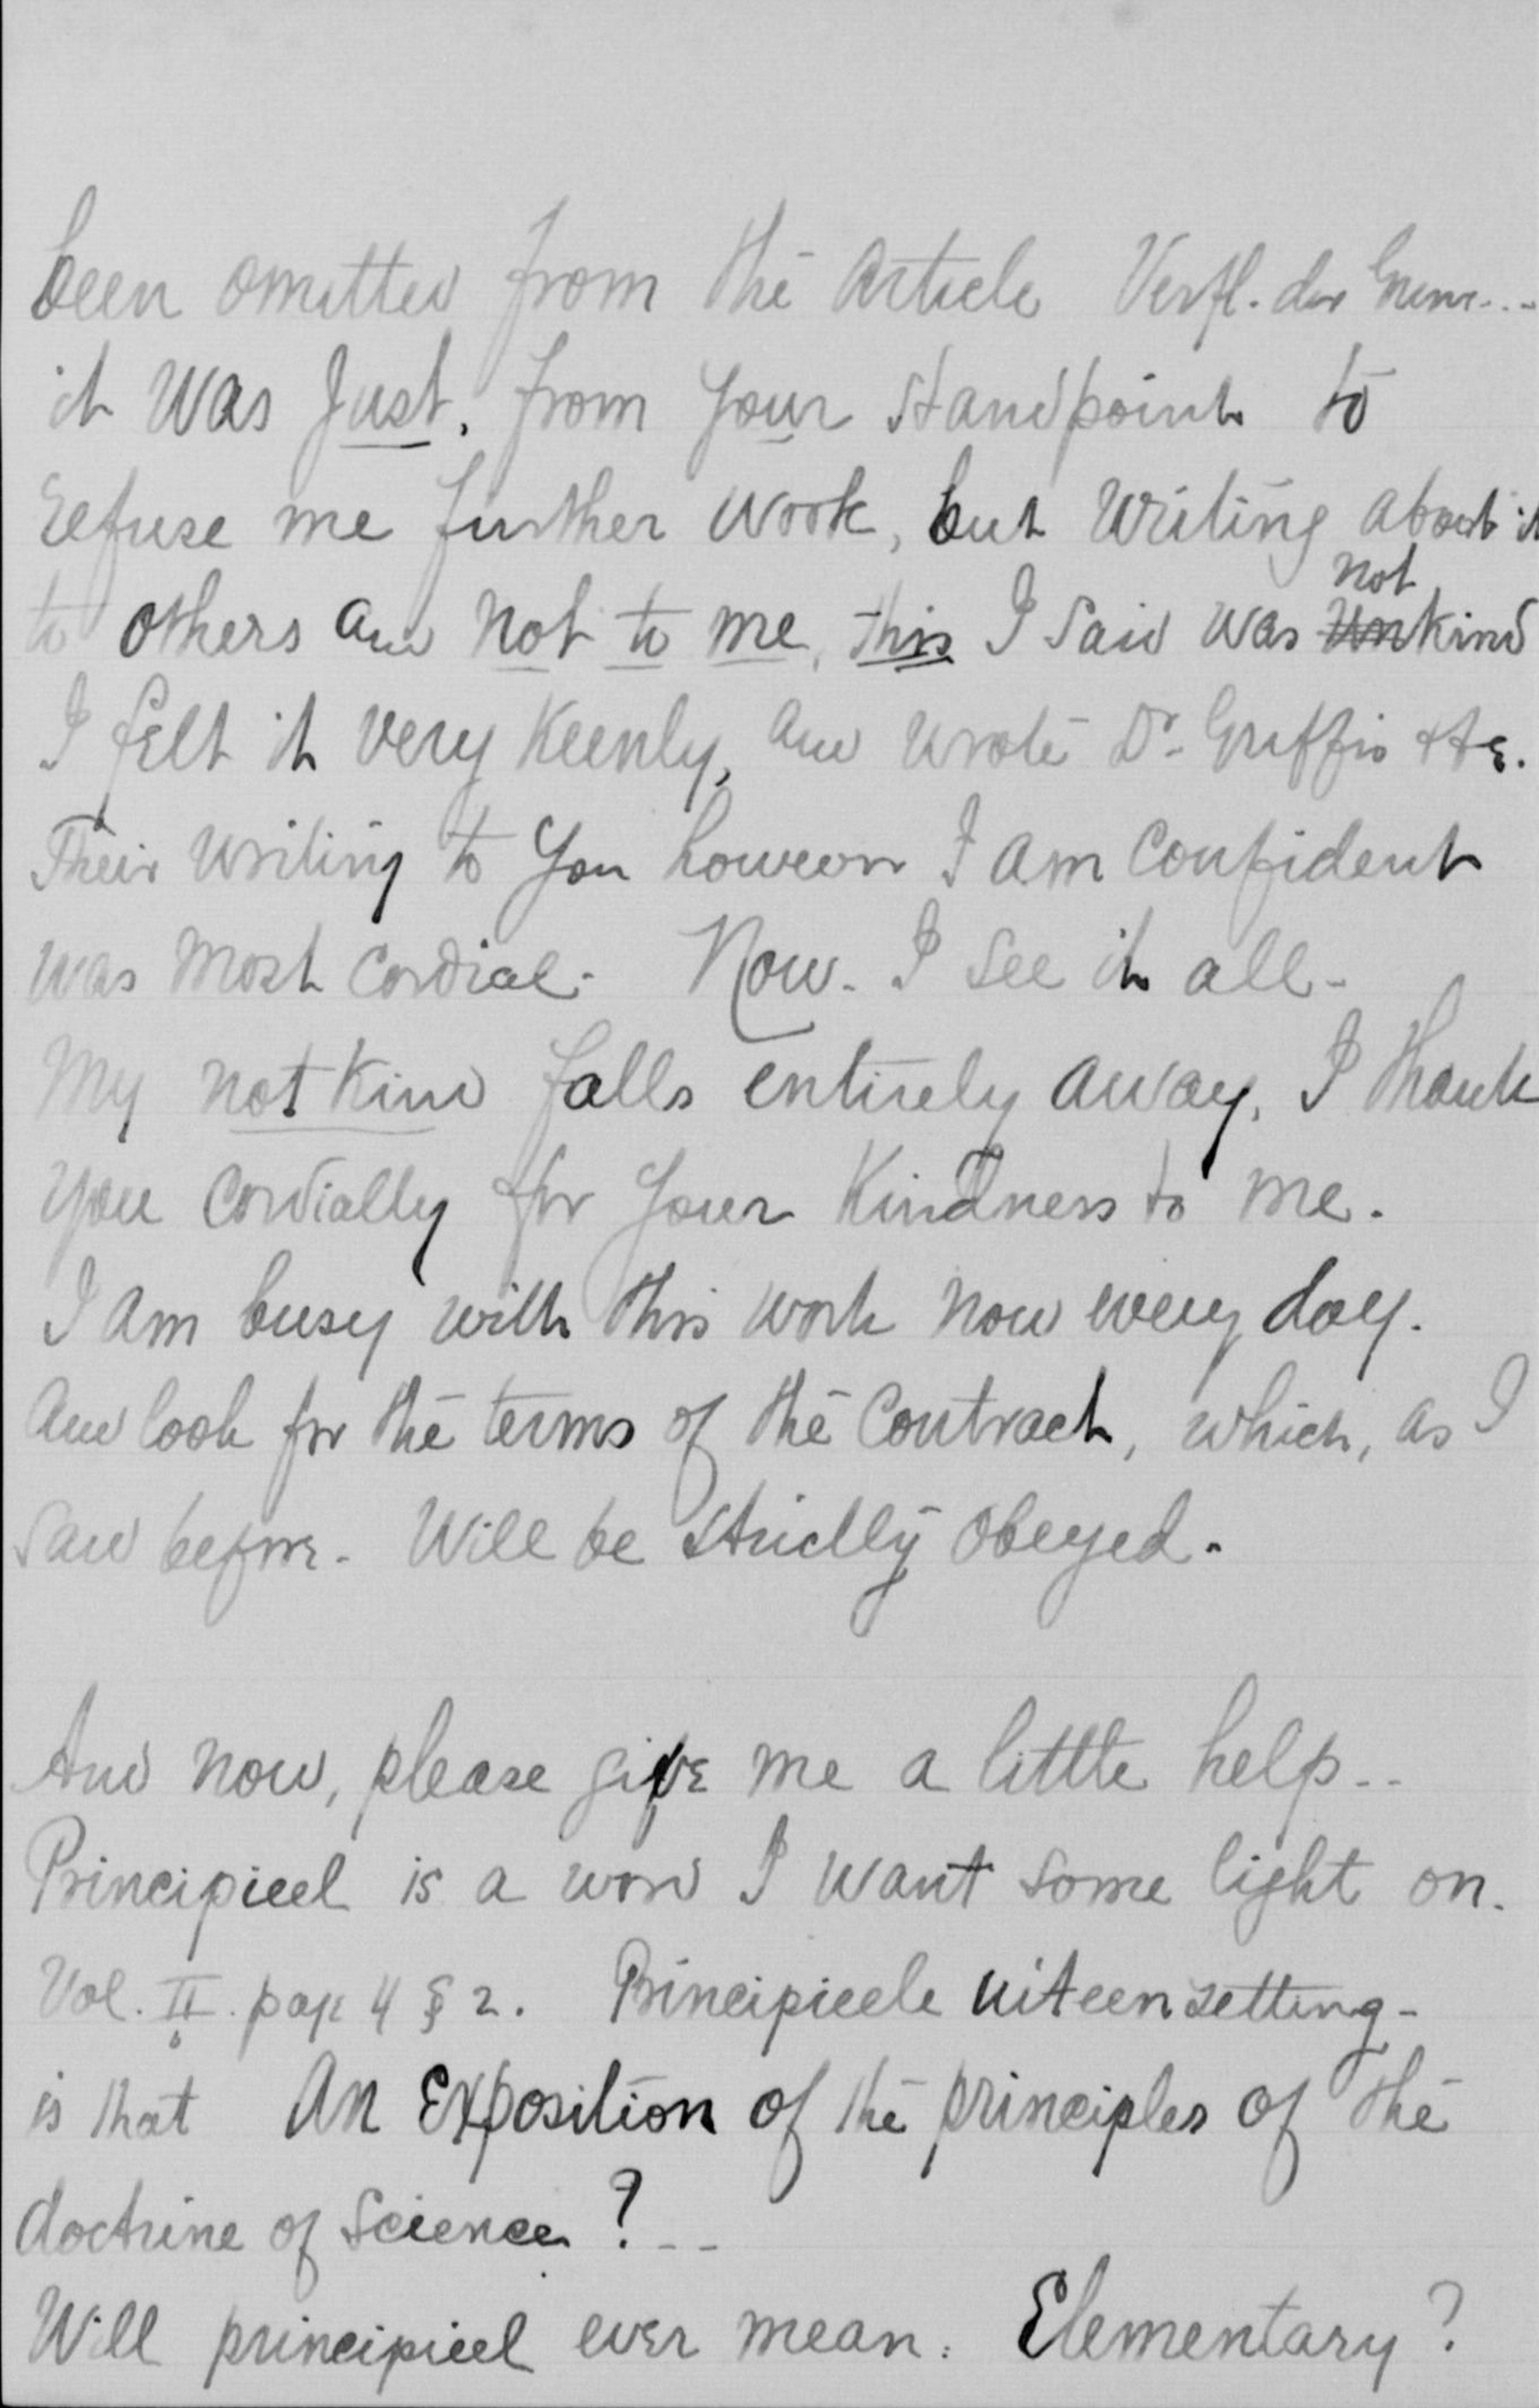 been omitted from the Article Verfl. der Grenz...
it was just, from your standpoint to
refuse me further work, but writing about it
not
to others and not to me, this I said was unkind
I felt it very keenly, and wrote Dr. Griffis etc.
Their writing to you however I am confident
was most cordial. Now. I see it all.
My not kind falls entirely away. I thank
you cordially for your kindness to me.
I am busy with this work now every day.
And look for the terms of the Contract, which, as I
said before. Will be strictly obeyed.
And now, please give me a little help..
Principieel is a word I want some light on.
Vol. II. page 4 § 2. Principieele uiteenzetting -
is that An Exposition of the principles of the
doctrine of Science? --
Will principieel ever mean: Elementary?